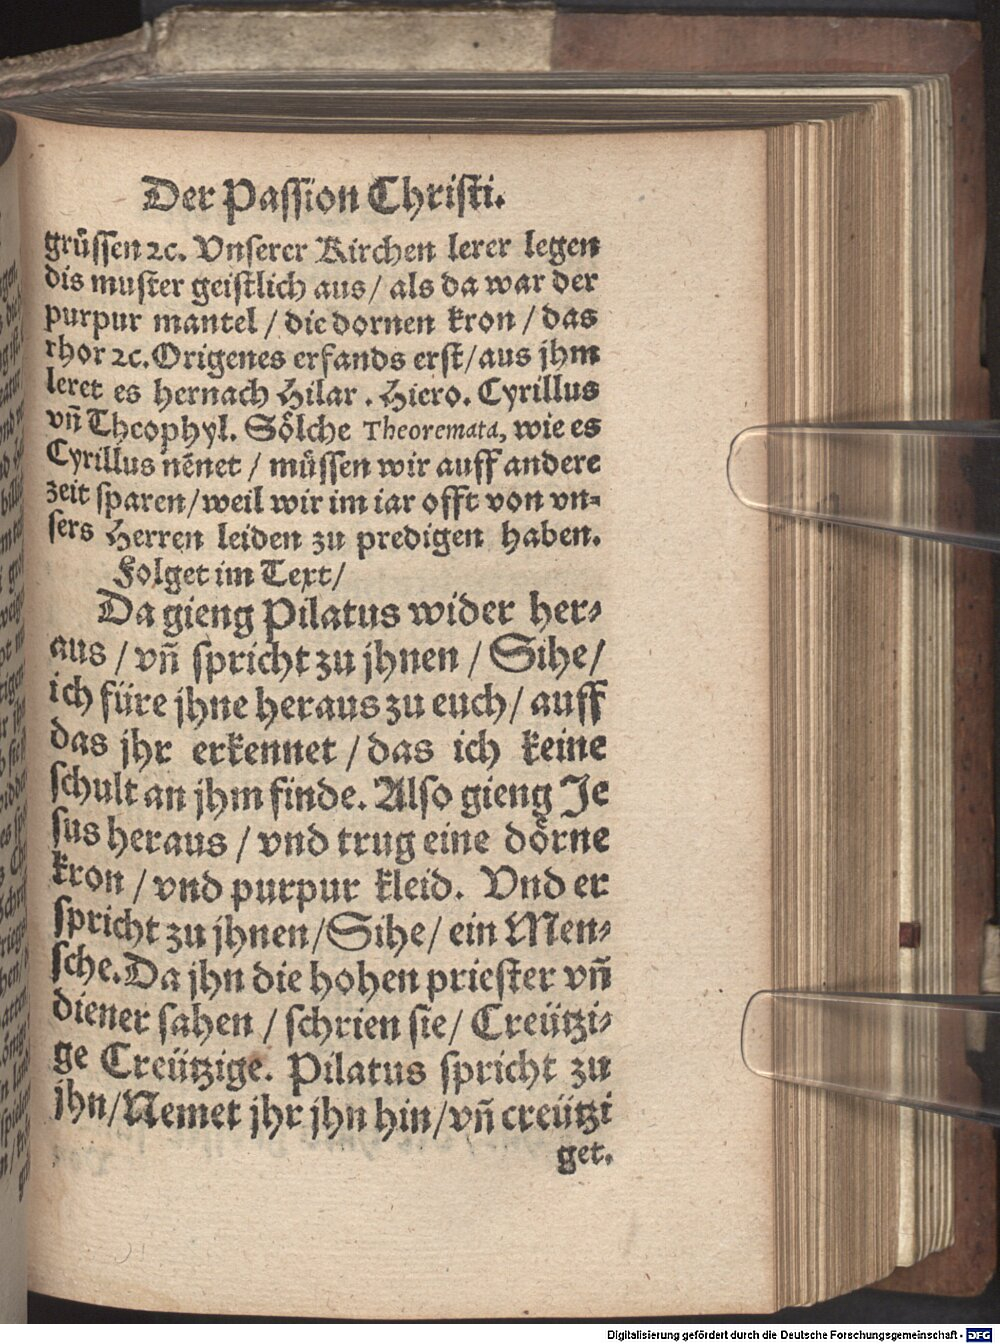 Der Passion Christi.
grüssen ꝛc. Vnserer Kirchen lerer legen
dis muster geistlich aus / als da war der
purpur mantel / die dornen kron / das
rhor ꝛc. Origenes erfands erst / aus jhm
leret es hernach Hilar. Hiero. Cyrillus
vñ Theophyl. Sölche Theoremata, wie es
Cyrillus nēnet / müssen wir auff andere
zeit sparen / weil wir im iar offt von vn⸗
sers Herren leiden zu predigen haben.
Folget im Text /
Da gieng Pilatus wider her⸗
aus / vñ spricht zu jhnen / Sihe /
ich füre jhne heraus zu euch / auff
das jhr erkennet / das ich keine
schult an jhm finde. Also gieng Je
sus heraus / vnd trug eine dörne
kron / vnd purpur kleid. Vnd er
spricht zu jhnen / Sihe / ein Men⸗
sche. Da jhn die hohen priester vñ
diener sahen / schrien sie / Creützi⸗
ge Creützige. Pilatus spricht zu
jhn / Nemet jhr jhn hin / vñ creützi
get.
Digitalisierung gefördert durch die Deutsche Forschungsgemeinschaft - DFG